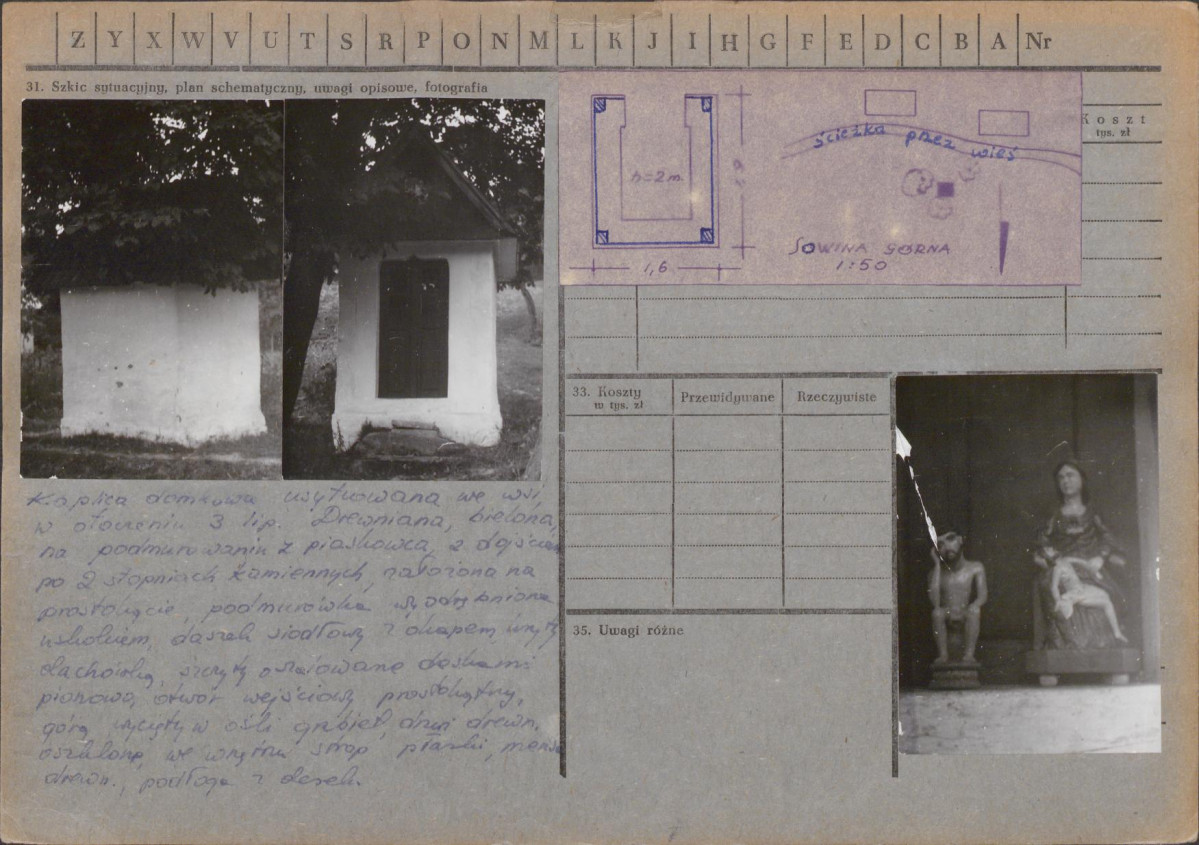 Z Y X W V U T S R P O N M L K J I H G F E D C B A Nr
31. Szkic sytuacyjny, plan schematyczny, uwagi opisowe, fotografia
Koszt
tys. zł
h=2m
1,6
ścieżka przez wieś
SOWINA GÓRNA
1:50
33. Koszty
w tys. zł
Przewidywane
Rzeczywiste
35. Uwagi różne
Kaplica domkowa usytuowana we wsi,
w otoczeniu 3 lip. Drewniana, bielona,
na podmurowaniu z piaskowca, z dojściem
po 2 stopniach kamiennych, założona na
prostokącie, podmurówka wyodrębniona
uskokiem, daszek siodłowy z okapem, kryty
dachówką, szczyty oszalowane deskami
pionowo, otwór wejściowy prostokątny,
górą wycięty w ośli grzbiet, drzwi drewn.
oszklone, we wnętrzu strop płaski, mensa
drewn., podłoga z desek.